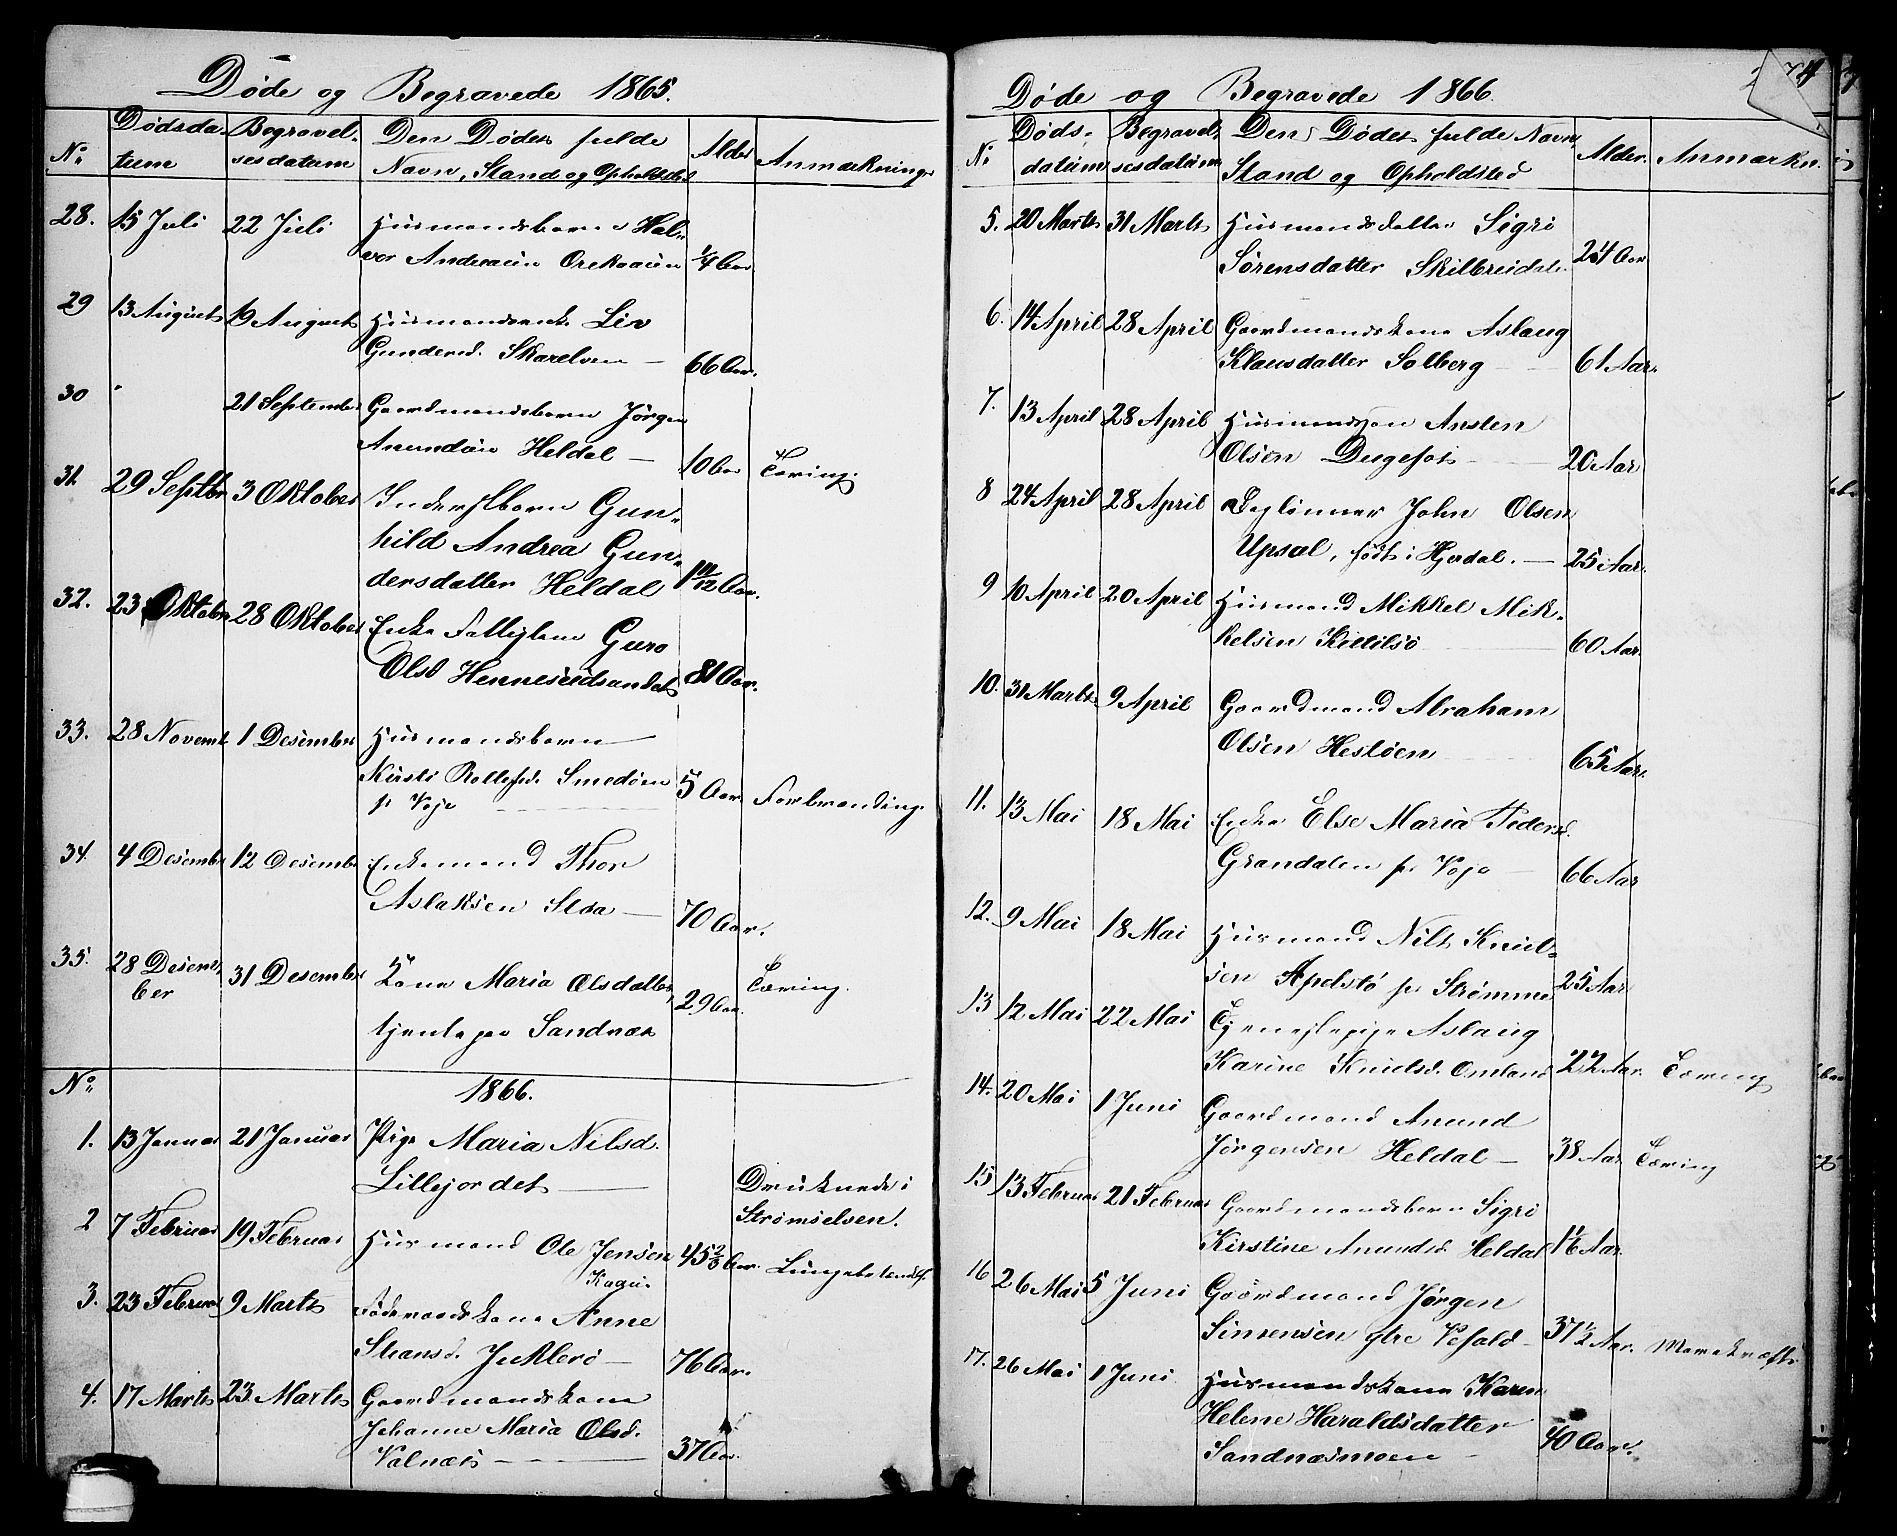 Døde og Begravede 1865.
No
Dødsda-
tum
Begravel-
sesdatum
Den Dødes fulde
Navn, Stand og Opholdsted
Alder
Anmærkninger
28. 15 Juli 22 Juli Husmandsbarn Hal-
vor Andersen 1/4 Aar
29 13 August 19 August Husmandsenke Liv
Gundersd. 66 Aar.
30 21 September Gaardmandsbarn Jørgen
Anundsen Heldal — 10 Aar Tæring.
31. 29 Septbr 3 Oktober Inderstbarn Gun-
hild Andrea Gun-
dersdatter Heldal Aar.
32. 23 Oktober 28 Oktober Enke Guro
Olsd Henneseidsandet 81 Aar.
33. 28 Novemb 1 Desember Husmandsbarn
Kirsti Smedøen
p Voje 5 Aar Forbrænding.
34. 4 Desember 12 Desember Enkemand Thor
Aslaksen — 70 Aar.
35. 28 Desem-
ber 31 Desember Kone Maria Olsdatter,
tjente paa Sandnæs 29 Aar. Tæring.
No 1866.
1. 13 Januar 21 Januar Pige Maria Nilsd.
Lillejordet — Druknede i
Strømselven.
2 7 Februar 19 Februar Husmand Ole Jensen
45 2/3 Aar.
3. 23 Februar 9 Marts Føderaadskone Anne
— 76 Aar.
4. 17 Marts 23 Marts Gaardmandskone
Johanne Maria Olsd.
Valnæs — 37 Aar.
Døde og Begravede 1866.
74
No
Døds-
datum
Begravel-
sesdatum
Den Dødes fulde Navn
Stand og Opholdsted
Alder.
Anmærkn.
5. 20 Marts 31 Marts Husmandsdatter Sigri
Sørensdatter Skilbreidal. 24 Aar
6. 14 April 28 April Gaardmandskone Aslaug
Klausdatter Solberg — 61 Aar.
7. 13 April 28 April Husmandssøn Ansten
Olsen Dugefos — 20 Aar
8 24 April 28 April Inderst John Olsen
Upsal, født i Hjerdal. — 25 Aar.
9 10 April 20 April Husmand Mikkel Mik-
kelsen 60 Aar.
10. 31 Marts 9 April Gaardmand Abraham
Olsen Hestøen 65 Aar.
11. 13 Mai 18 Mai Enke Else Maria Pedersd.
Grandalen p. Voje — 66 Aar
12. 9 Mai 18 Mai Husmand Nils Knud-
sen Apelstø p. Strømme 25 Aar
13 12 Mai 22 Mai Tjenestepige Aslaug
Karine Knudsd. Omland 22 Aar. Tæring
14. 20 Mai 1 Juni Gaardmand Anund
Jørgensen Heldal — 38 Aar Tæring
15 13 Februar 21 Februar Gaardmandsbarn Sigri
Kirstine Anundsd. Heldal Aar.
16 26 Mai 5 Juni Gaardmand Jørgen
Simensen 37 1/2 Aar.
17. 26 Mai 1 Juni Husmandskone Karen
Helene Haraldsdatter
Sandnæsmoen 40 Aar.